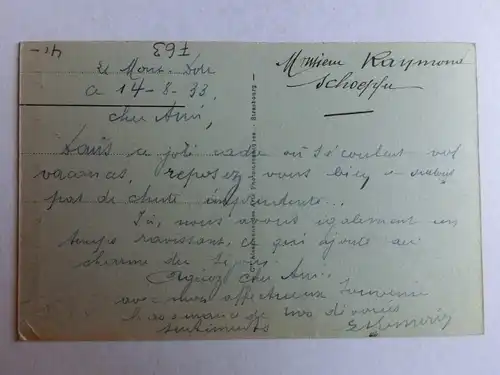 763
Monsieur Raymond
Le Mont-Dore
Schoepfer
a 14-8-33
cher Ami,
Dans ce joli cadre où s'écoulent vos
vacances, reposez vous bien et surtout
pas de chute imprudente..
Ici, nous avons également un
temps ravissant, ce qui ajoute au
charme du séjour.
Agréez cher Ami,
avec mon affectueux souvenir
l'assurance de mes dévoués
sentiments